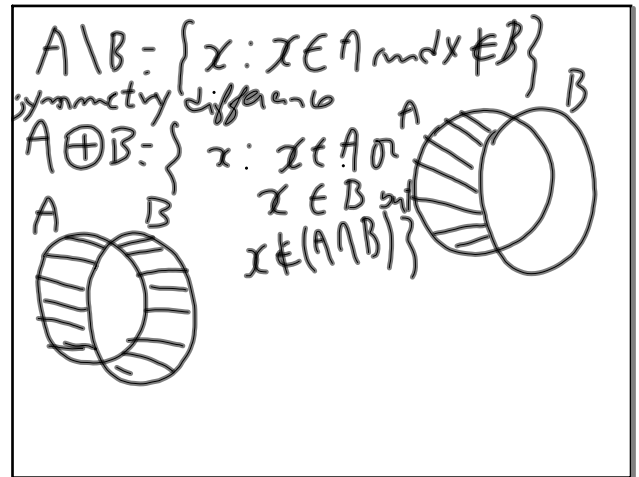 A \ B = { x : x ∈ A and x ∉ B }
symmetry difference
A ⊕ B = { x : x ∈ A or
x ∈ B but
x ∉ (A ∩ B) }
A B
A B